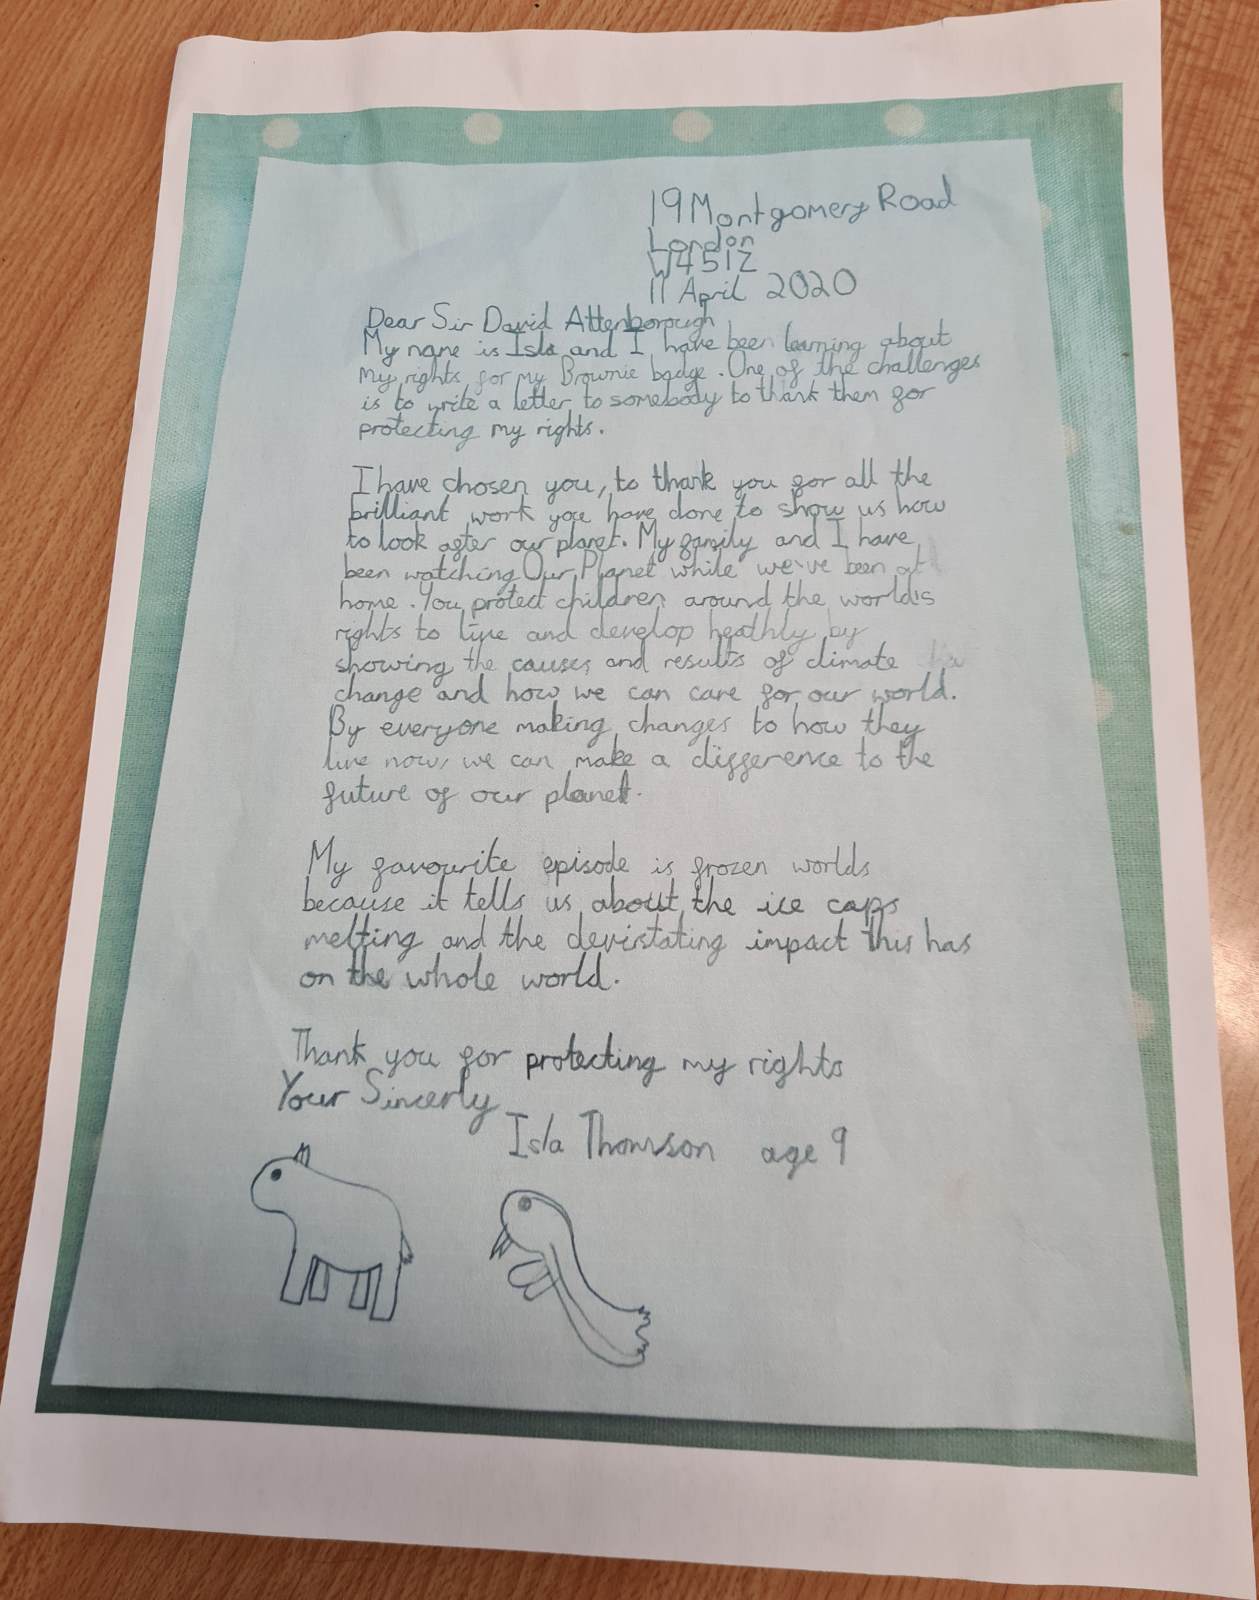 19 Montgomery Road
London
W4 5LZ
11 April 2020
Dear Sir David Attenborough
My name is Isla and I have been learning about
my rights for my Brownie badge. One of the challenges
is to write a letter to somebody to thank them for
protecting my rights.
I have chosen you, to thank you for all the
brilliant work you have done to show us how
to look after our planet. My family and I have
been watching Our Planet while we've been at
home. You protect children around the world's
rights to live and develop heathly by
showing the causes and results of climate
change and how we can care for our world.
By everyone making changes to how they
live now, we can make a difference to the
future of our planet.
My favourite episode is frozen worlds
because it tells us about the ice caps
melting and the devistating impact this has
on the whole world.
Thank you for protecting my rights
Your Sincerly
Isla Thomson age 9